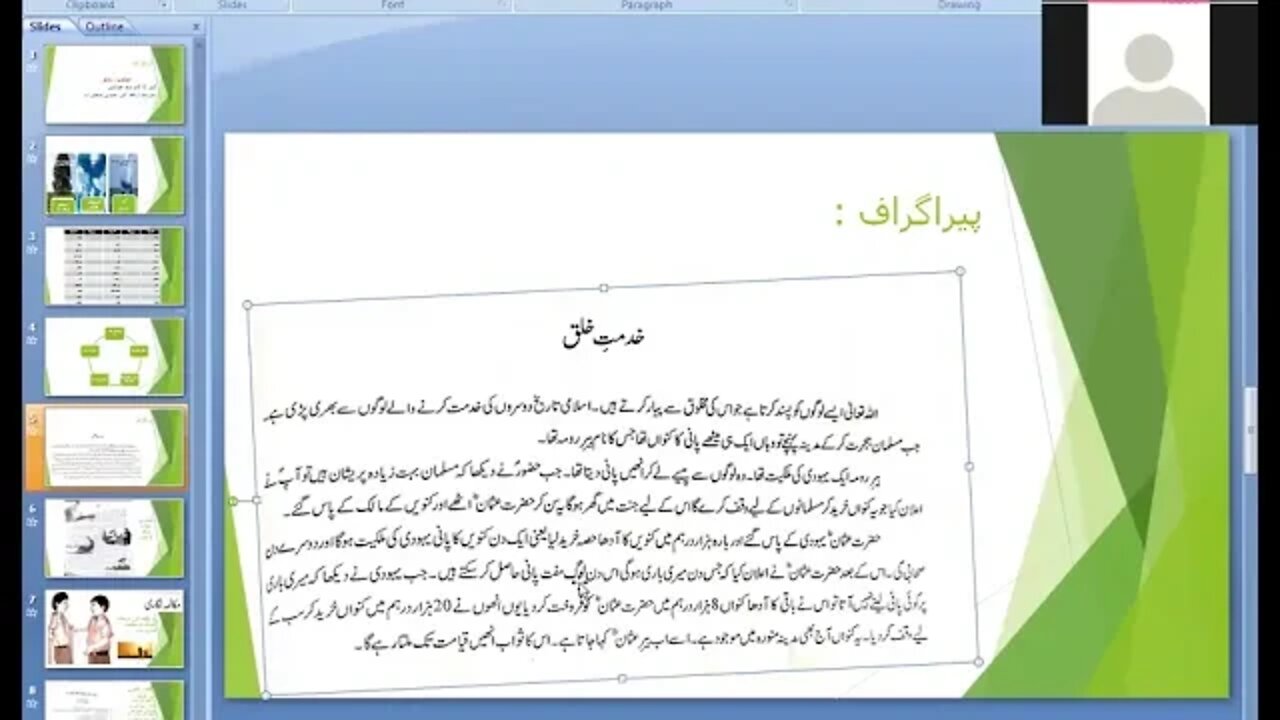 Clipboard
Slides
Font
Paragraph
Drawing
Slides
Outline
1
2
3
4
5
6
7
8
مکالمہ نگاری
پیراگراف :
خدمتِ خلق
اللہ تعالیٰ ایسے لوگوں کو پسند کرتا ہے جو اس کی مخلوق سے پیار کرتے ہیں۔ اسلامی تاریخ دوسروں کی خدمت کرنے والے لوگوں سے بھری پڑی ہے۔
جب مسلمان ہجرت کر کے مدینہ پہنچے تو وہاں ایک ہی میٹھے پانی کا کنواں تھا جس کا نام بیرِ رومہ تھا۔
بیرِ رومہ ایک یہودی کی ملکیت تھا۔ وہ لوگوں سے پیسے لے کر انھیں پانی دیتا تھا۔ جب حضورؐ نے دیکھا کہ مسلمان بہت زیادہ پریشان ہیں تو آپؐ نے
اعلان کیا جو یہ کنواں خرید کر مسلمانوں کے لیے وقف کرے گا اس کے لیے جنت میں گھر ہوگا یہ سن کر حضرت عثمانؓ اٹھے اور کنویں کے مالک کے پاس گئے۔
حضرت عثمانؓ یہودی کے پاس گئے اور بارہ ہزار درہم میں کنویں کا آدھا حصہ خرید لیا یعنی ایک دن کنویں کا پانی یہودی کی ملکیت ہوگا اور دوسرے دن
صحابیؓ کی۔ اس کے بعد حضرت عثمانؓ نے اعلان کیا کہ جس دن میری باری ہوگی اس دن لوگ مفت پانی حاصل کر سکتے ہیں۔ جب یہودی نے دیکھا کہ میری باری
پر کوئی پانی لینے نہیں آتا تو اس نے باقی کا آدھا کنواں 8 ہزار درہم میں حضرت عثمانؓ کو فروخت کر دیا یوں انھوں نے 20 ہزار درہم میں کنواں خرید کر سب کے
لیے وقف کر دیا۔ یہ کنواں آج بھی مدینہ منورہ میں موجود ہے۔ اسے اب بیرِ عثمانؓ کہا جاتا ہے۔ اس کا ثواب انھیں قیامت تک ملتا رہے گا۔